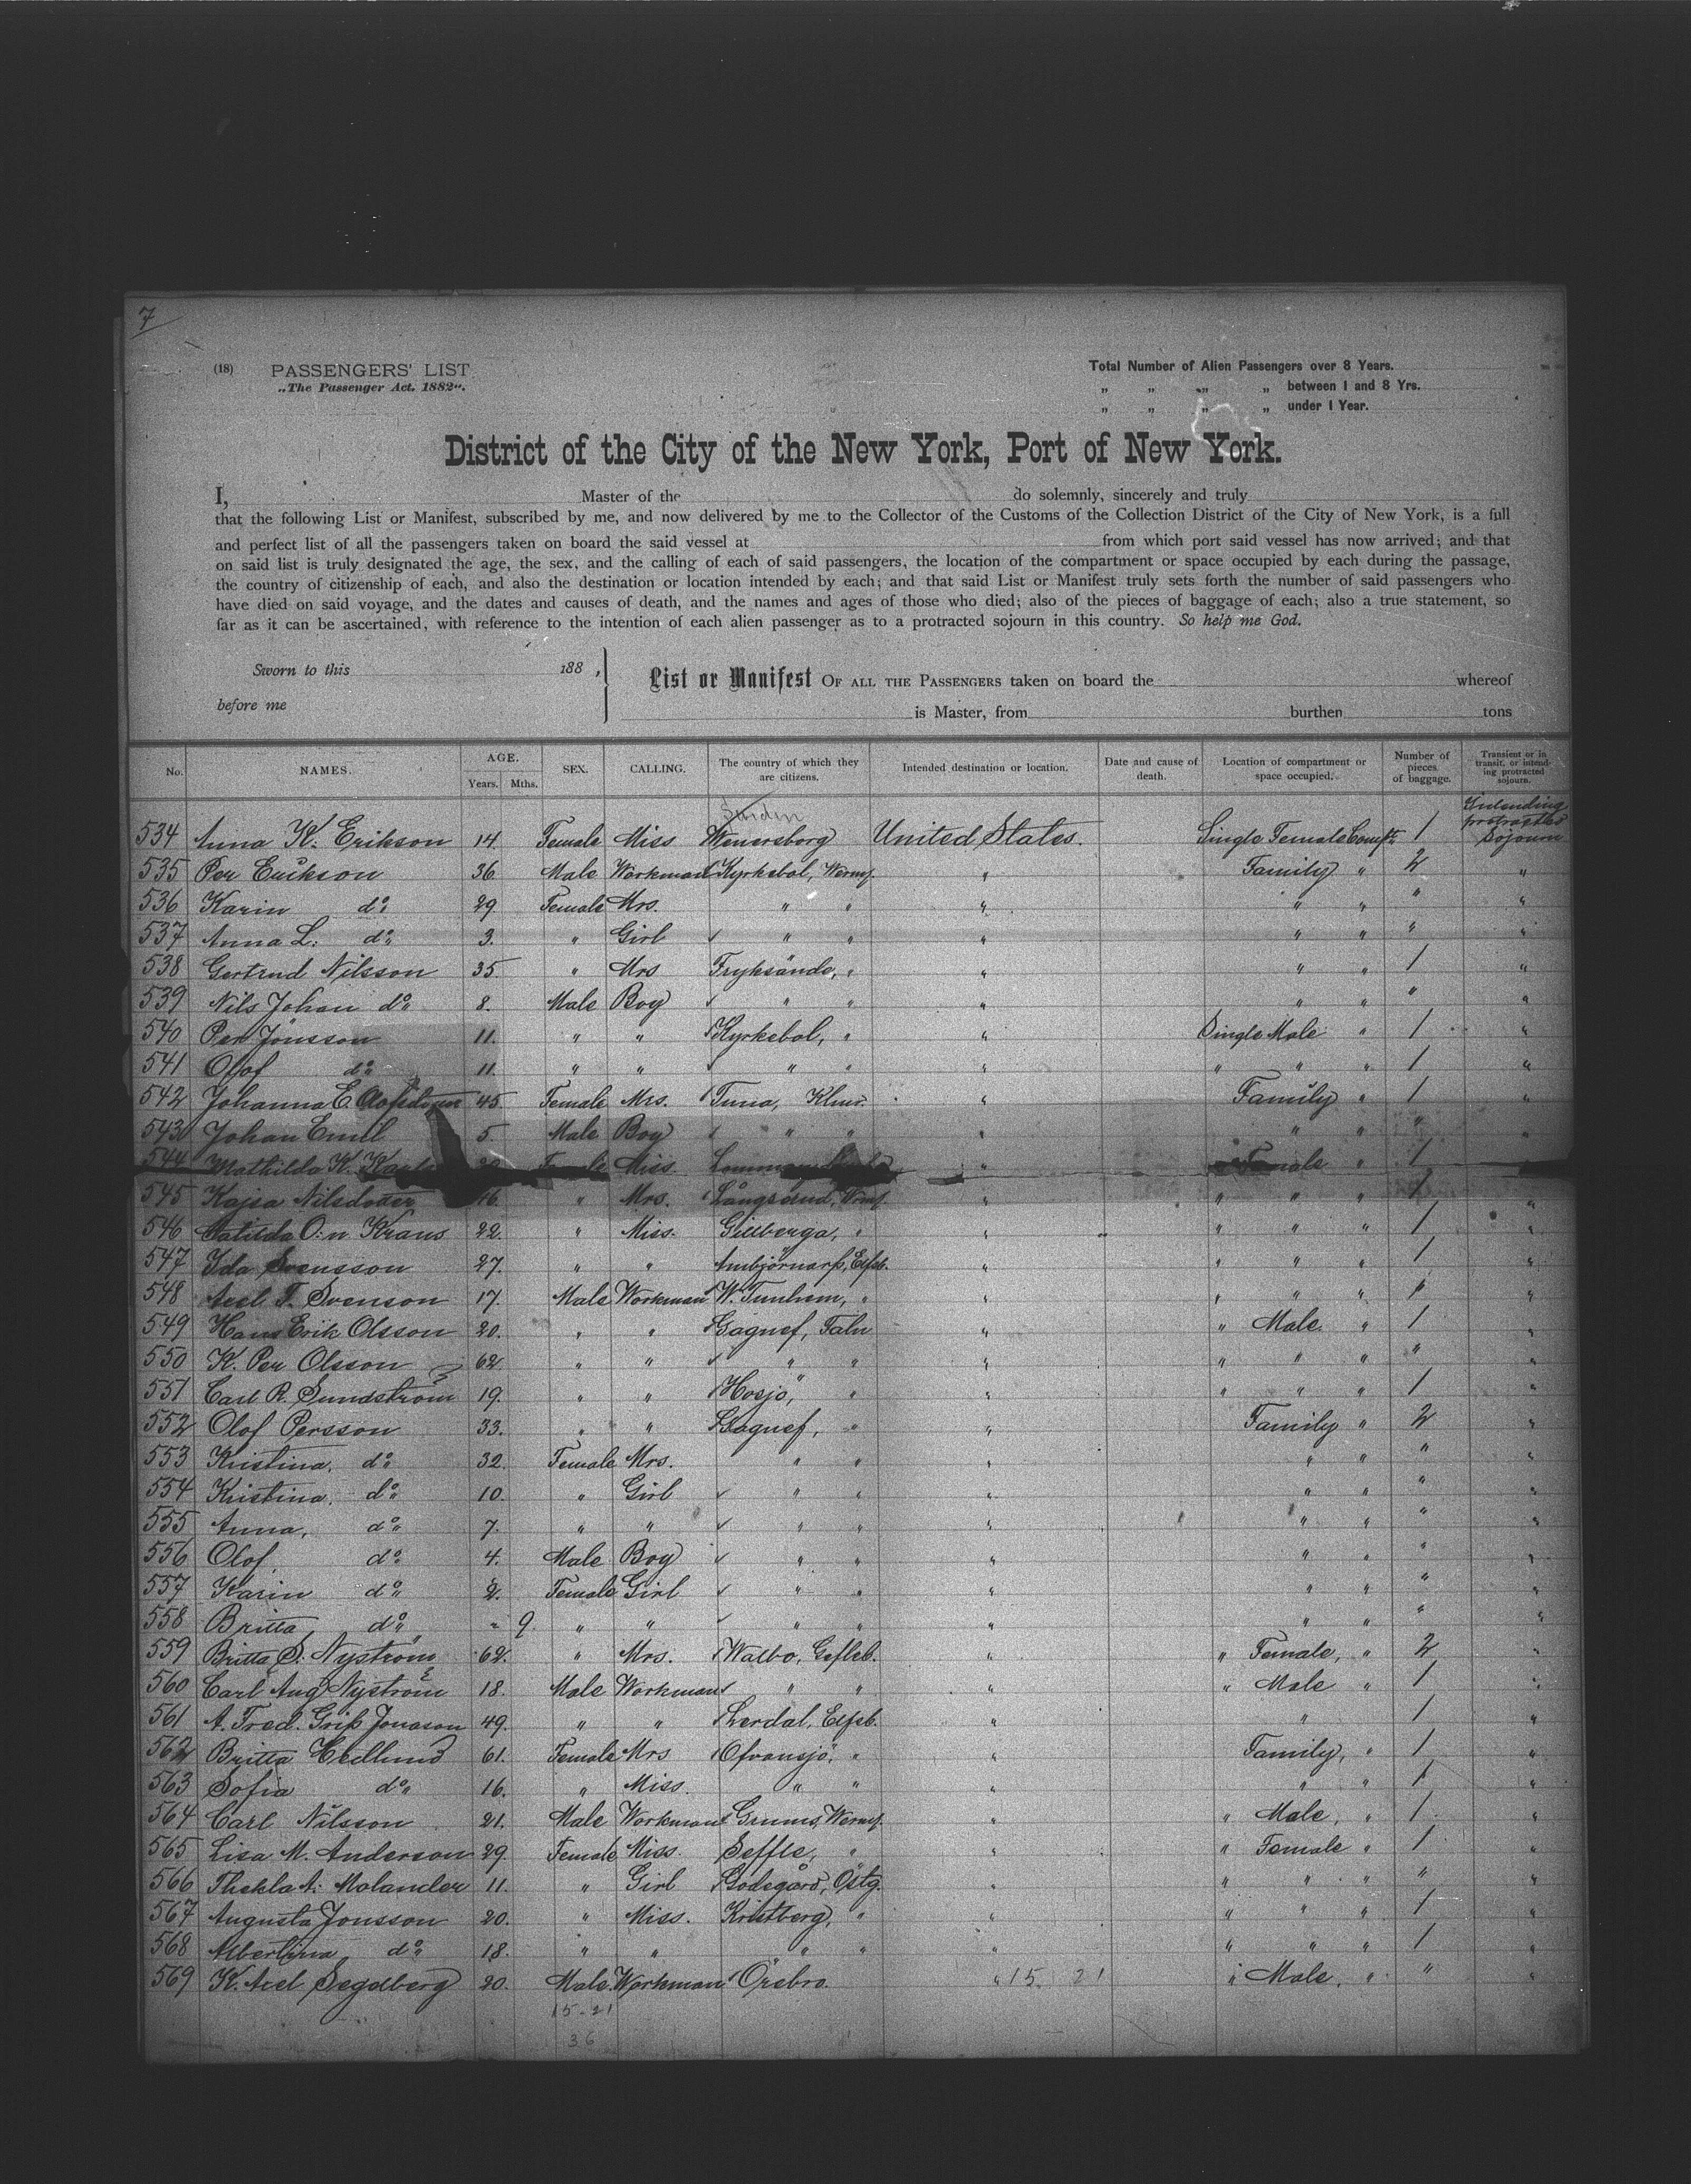 7
(18) PASSENGERS' LIST
„The Passenger Act. 1882“.
Total Number of Alien Passengers over 8 Years.
„ „ „ „ between 1 and 8 Yrs.
„ „ „ „ under 1 Year.
District of the City of the New York, Port of New York.
I, Master of the do solemnly, sincerely and truly
that the following List or Manifest, subscribed by me, and now delivered by me to the Collector of the Customs of the Collection District of the City of New York, is a full
and perfect list of all the passengers taken on board the said vessel at from which port said vessel has now arrived; and that
on said list is truly designated the age, the sex, and the calling of each of said passengers, the location of the compartment or space occupied by each during the passage,
the country of citizenship of each, and also the destination or location intended by each; and that said List or Manifest truly sets forth the number of said passengers who
have died on said voyage, and the dates and causes of death, and the names and ages of those who died; also of the pieces of baggage of each; also a true statement, so
far as it can be ascertained, with reference to the intention of each alien passenger as to a protracted sojourn in this country. So help me God.
Sworn to this 188 ,
before me
List or Manifest OF ALL THE PASSENGERS taken on board the whereof
is Master, from burthen tons
No. NAMES. AGE. Years. Mths. SEX. CALLING. The country of which they are citizens. Intended destination or location. Date and cause of death. Location of compartment or space occupied. Number of pieces of baggage. Transient or in transit, or intending protracted sojourn.
Sweden
534 Anna K. Erikson 14. Female Miss Wenersborg United States. Single Female Compt. 1 Intending protracted Sojourn
535 Per Erikson 36 Male Workman Kyrkebol, Wermg. " Family " 2 "
536 Karin do 29. Female Mrs. " " " " " " "
537 Anna L. do 3. " Girl " " " " " " "
538 Gertrud Nilsson 35 " Mrs Fryksände, " " " " 1 "
539 Nils Johan do 8. Male Boy " " " " " " "
540 Per Jönsson 11. " " Kyrkebol, " " Single Male " 1 "
541 Olof do 11. " " " " " " " " 1 "
542 Johanna E. Olofsdotter 45 Female Mrs. Tuna, " Family " 1 "
543 Johan Emil 5. Male Boy " " " " " " "
544 Mathilda K. Female Miss. " Female " 1
545 Kajsa Nilsdotter 16. " Mrs. Wermg. " " " " 1 "
546 Matilda O:n Kraus 22. " Miss. Gillberga, " " " " " 1 "
547 Ida Svensson 27. " " Ambjörnarp, Elfsb. " " " " 1 "
548 Axel T. Svenson 17. Male Workman W. Tunhem, " " " " " 1 "
549 Hans Erik Olsson 20. " " Gagnef, Falu " " Male. " 1 "
550 K. Per Olsson 62. " " " " " " " " " "
551 Carl R. Sundström 19. " " Hosjö, " " " " " 1 "
552 Olof Persson 33. " " Gagnef, " " Family " 2 "
553 Kristina, do 32. Female Mrs. " " " " " " "
554 Kristina, do 10. " Girl " " " " " " "
555 Anna, do 7. " " " " " " " " "
556 Olof do 4. Male Boy " " " " " " "
557 Karin do 2. Female Girl " " " " " " "
558 Britta do " 9. " " " " " " " " "
559 Britta S. Nyström 62. " Mrs. Walbo, Gefleb. " " Female, " 2 "
560 Carl Aug Nyström 18. Male Workman " " " " Male " 1 "
561 A. Fred. Grip Jonason 49. " " Lerdal, Elfsb. " " 1 "
562 Britta Hedlund 61. Female Mrs Ofvansjö, " " Family, " 1 "
563 Sofia do 16. " Miss. " " " " " 1 "
564 Carl Nilsson 21. Male Workman Grums, Wermg. " " Male, " 1 "
565 Lisa M. Anderson 29. Female Miss. Seffle, " " " Female " 1 "
566 Thekla A. Molander 11. " Girl Godegård, Östg. " " " " " "
567 Augusta Jonsson 20. " Miss. Kristberg, " " " " " 1 "
568 Albertina do 18. " " " " " " " " 1 "
569 K. Axel Segolberg 20. Male Workman Örebro. " 15. 21 " Male, " " "
15-21
36